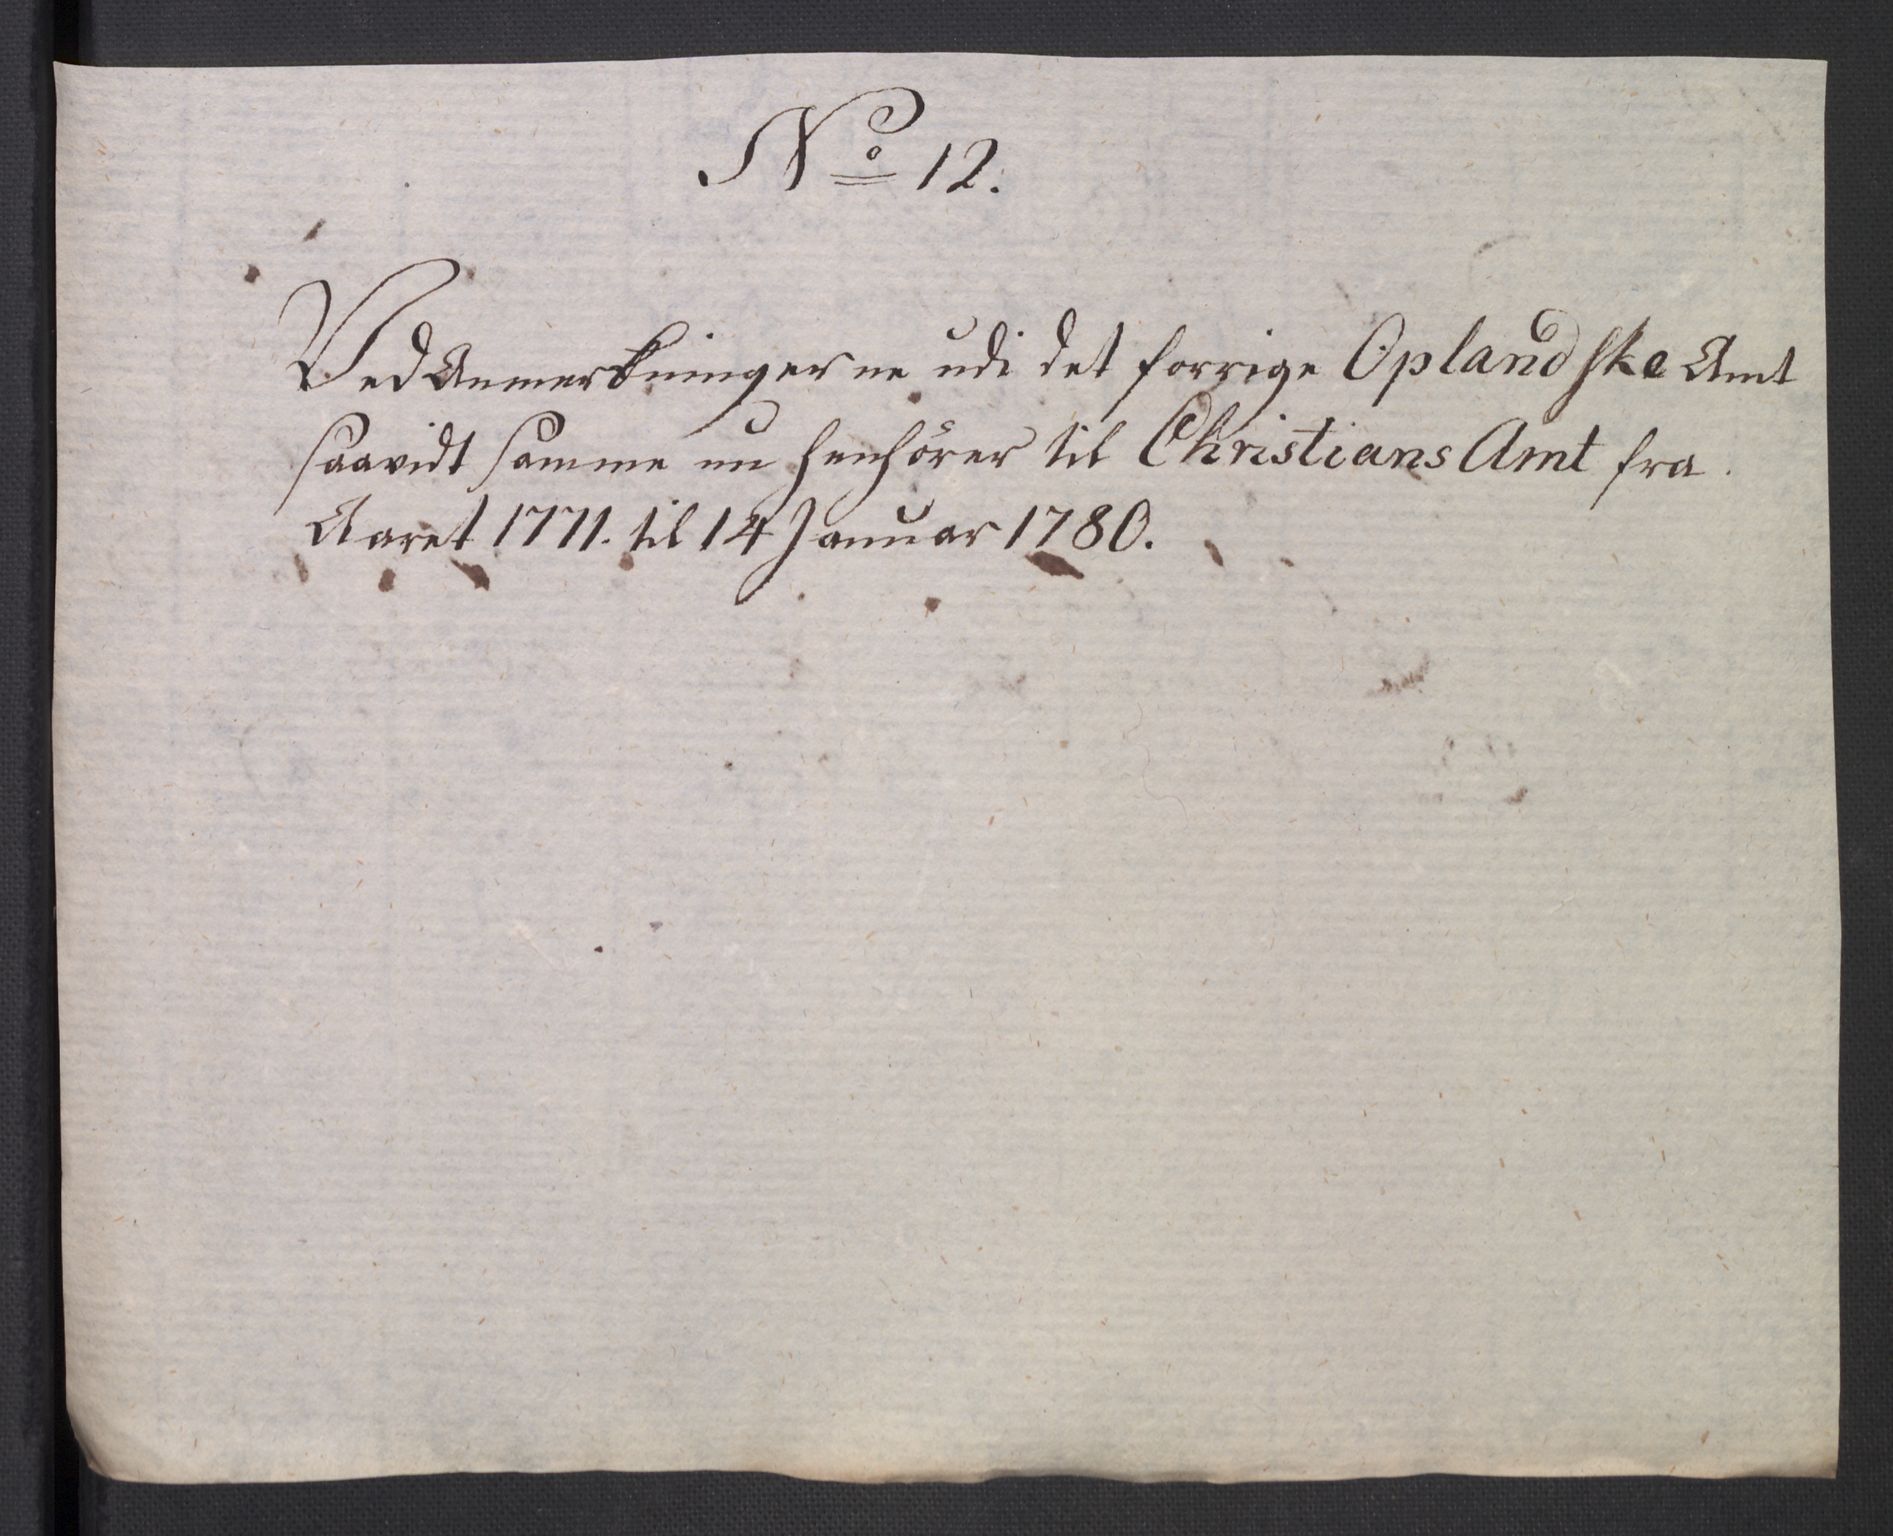 No 12.
Ved Anmerkningerne udi det forrige Oplandske Amt
saavidt samme nu henhörer til Christians Amt fra
Aaret 1771. til 14 Januar 1780.